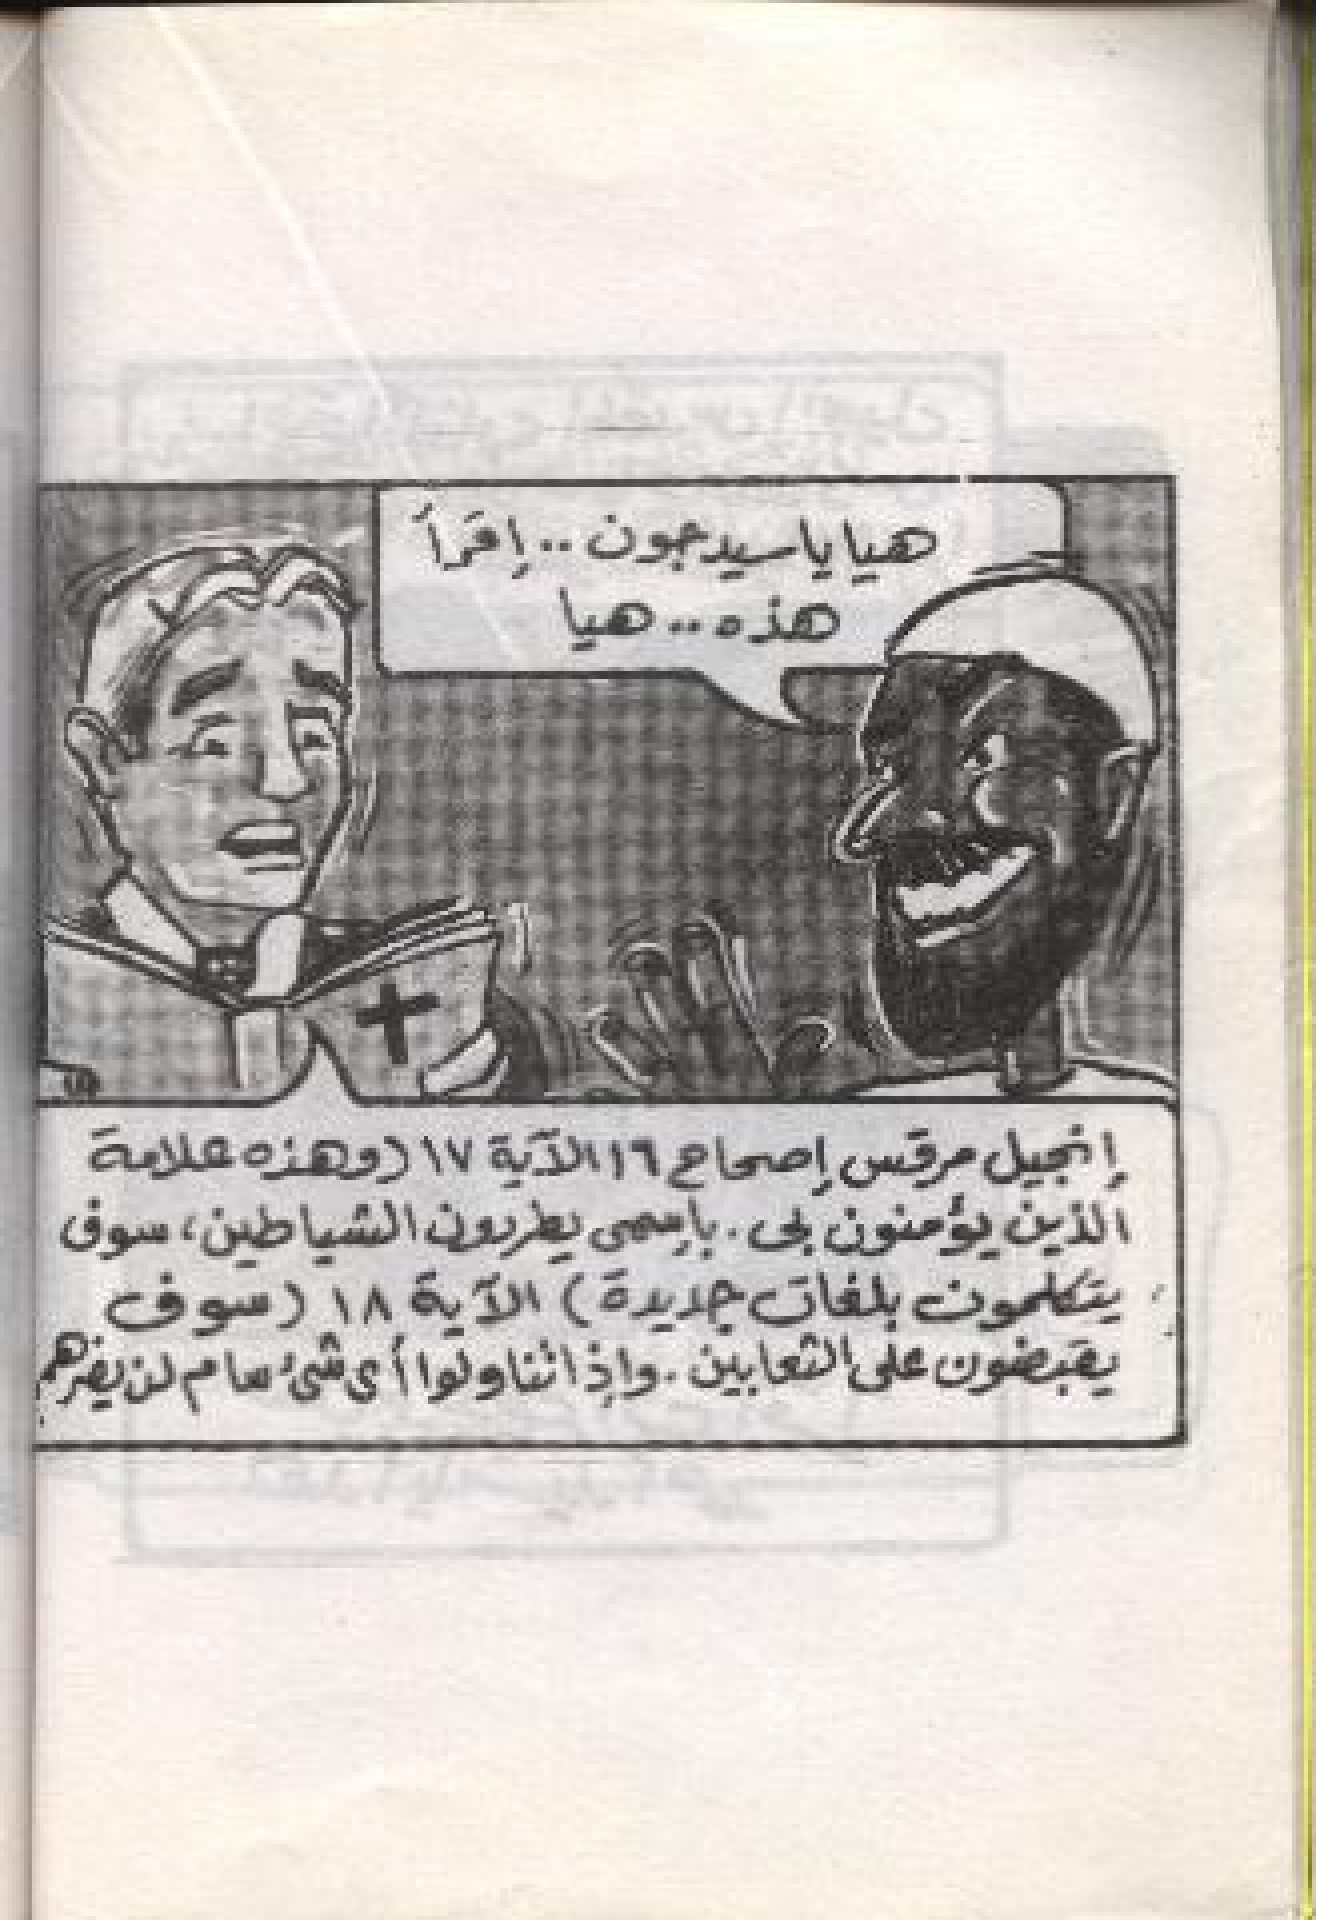 هيا يا سيد جون .. إقرأ
هذه .. هيا
إنجيل مرقس إصحاح ١٦ الآية ١٧ (وهذه علامة
الذين يؤمنون بي . بإسمى يطردون الشياطين، سوف
يتكلمون بلغات جديدة) الآية ١٨ (سوف
يقبضون على الثعابين . وإذا تناولوا أى شئ سام لن يضرهم